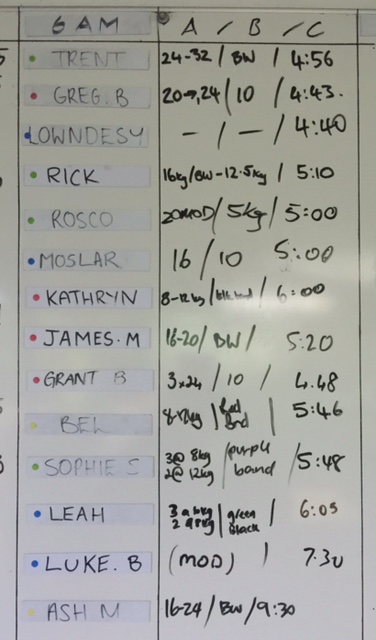 6AM A / B / C
TRENT 24-32 / BW / 4:56
GREG. B 20→24 / 10 / 4:43.
LOWNDESY - / - / 4:40
RICK 16kg/BW-12.5kg / 5:10
ROSCO 20MOD / 5kg / 5:00
MOSLAR 16 / 10 5:00
KATHRYN 8-12kg / / 6:00
JAMES. M 16-20 / BW / 5:20
GRANT B 3x24 / 10 / 4.48
BEL 8-12kg / Red Band / 5:46
SOPHIE S 3@ 8kg 2@ 12kg / purple band / 5:48
LEAH 3 @ 2 @ 8kg / green black 6:05
LUKE. B (MOD) / 7:30
ASH M 16-24 / BW / 9:30